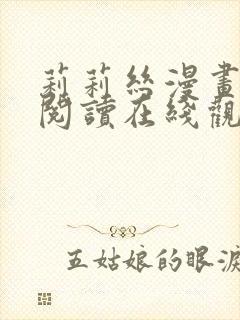 莉莉絲漫畫
閱讀在綫觀
五姑娘的眼淚